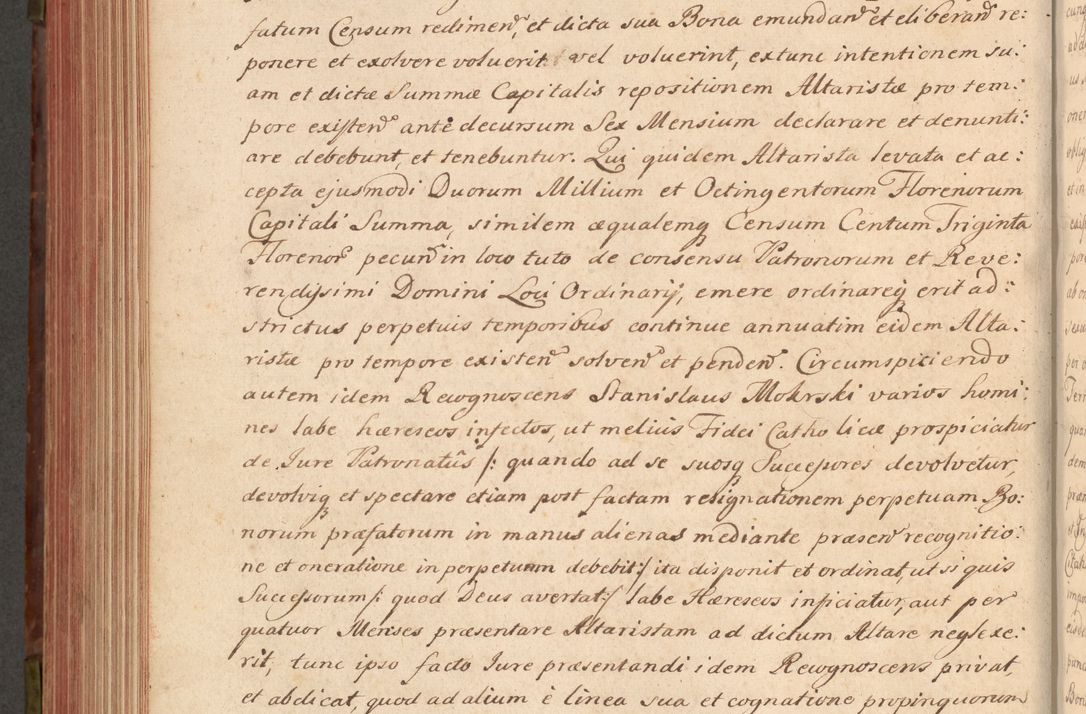 fatum Censum redimen̄, et dicta sua Bona emundan̄ et eliberan̄ re:
ponere et exolvere voluerit vel voluerint, extunc intentionem su:
am et dictæ Summæ Capitalis repositionem Altaristæ pro tem:
pore existen̄ ante decursum Sex Mensium declarare et denunti:
are debebunt, et tenebuntur. Qui quidem Altarista levata et ac:
cepta ejusmodi Duorum Millium et Octingentorum Florenorum
Capitali Summa, similem æqualemq́ Censum Centum Triginta
Florenor̄ pecun̄ in loco tuto de consensu Patronorum et Reve:
rendissimi Domini Loci Ordinarij, emere ordinareq́ erit ad:
strictus perpetuis temporibus continue annuatim eidem Alta:
ristæ pro tempore existen̄ solven̄ et penden̄. Circumspiciendo
autem idem Recognoscens Stanislaus Mokrski varios homi:
nes labe hæreseos infectos, ut melius Fidei Catholicæ prospiciatur
de Jure Patronatûs /: quando ad se suosq́ Successores devolvetur,
devolviq́ et spectare etiam post factam resignationem perpetuam Bo:
norum præfatorum in manus alienas mediante præsen̄ recognitio:
ne et oneratione in perpetuum debebit :/ ita disponit et ordinat, ut si quis
Successorum /: quod Deus avertat :/ labe Hæreseos inficiatur, aut per
quatuor Menses præsentare Altaristam ad dictum Altare neglexe:
rit, tunc ipso facto Jure præsentandi idem Recognoscens privat,
et abdicat, quod ad alium è linea sua et cognatione propinquorum